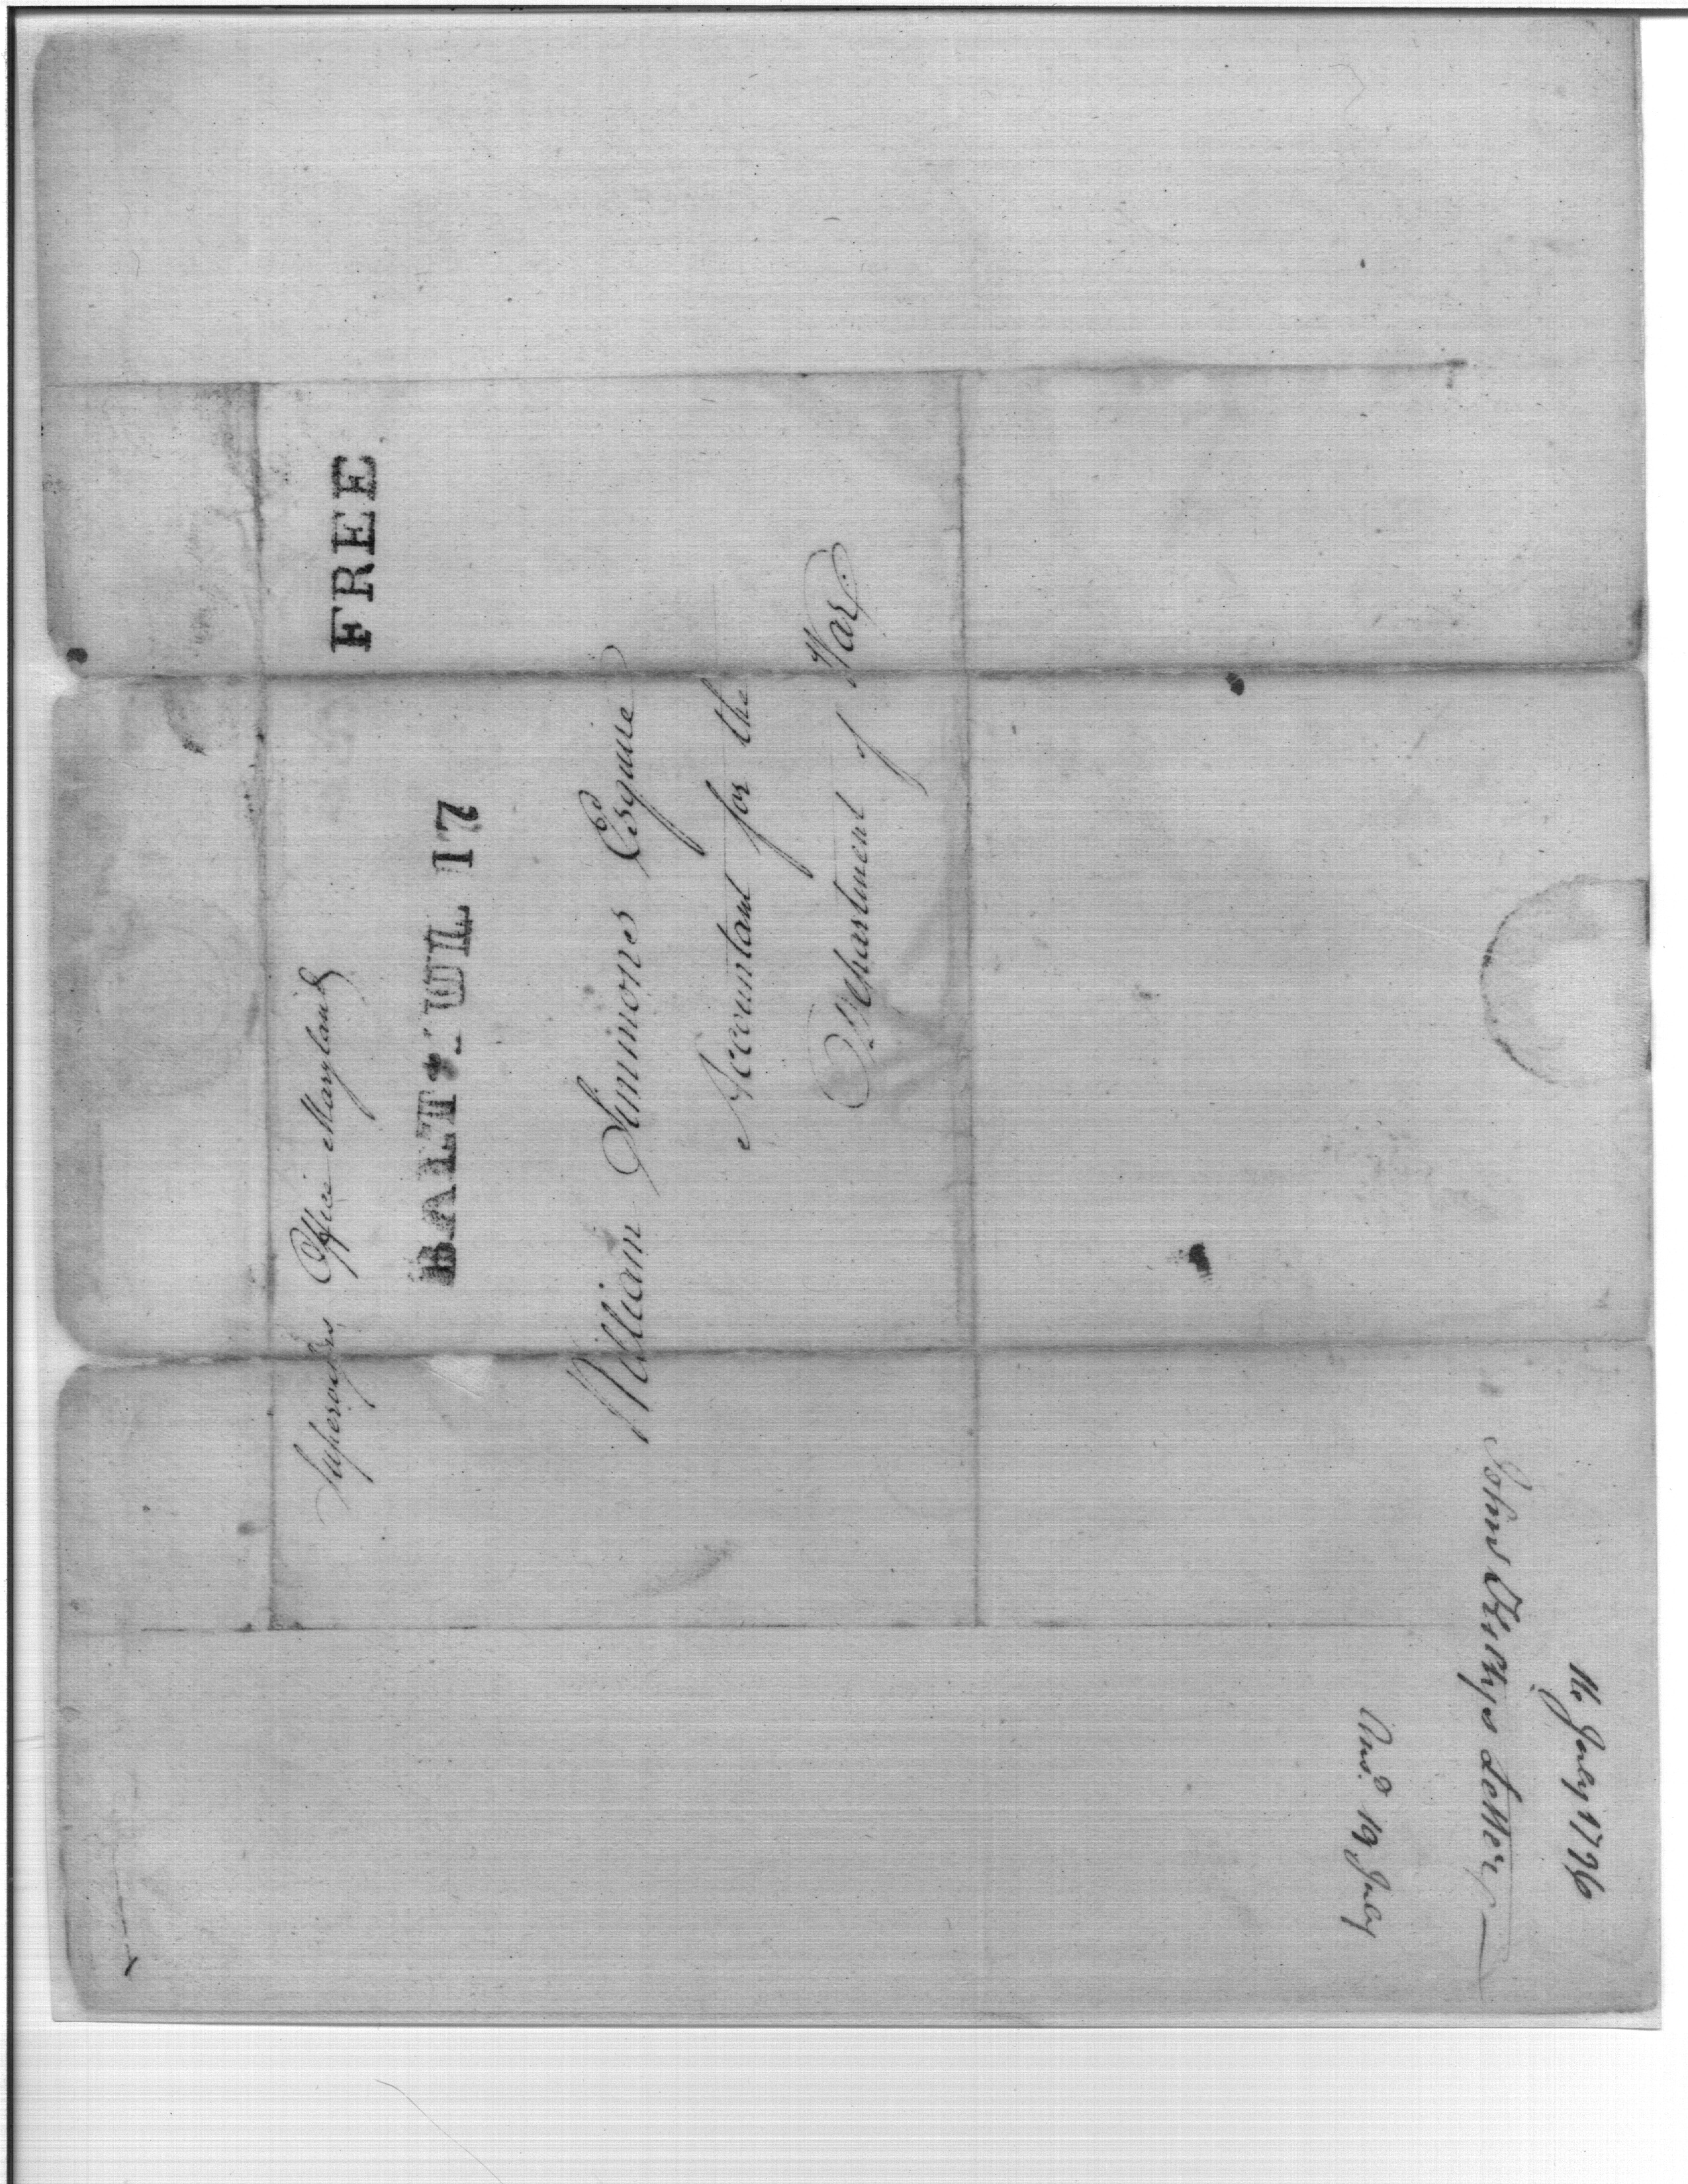 Supervisors Office Maryland
FREE
BALT * JUL 17
William Simmons Esquire
Accountant for the
Department of War
16 July 1796
John Letter
Ansd. 19 July